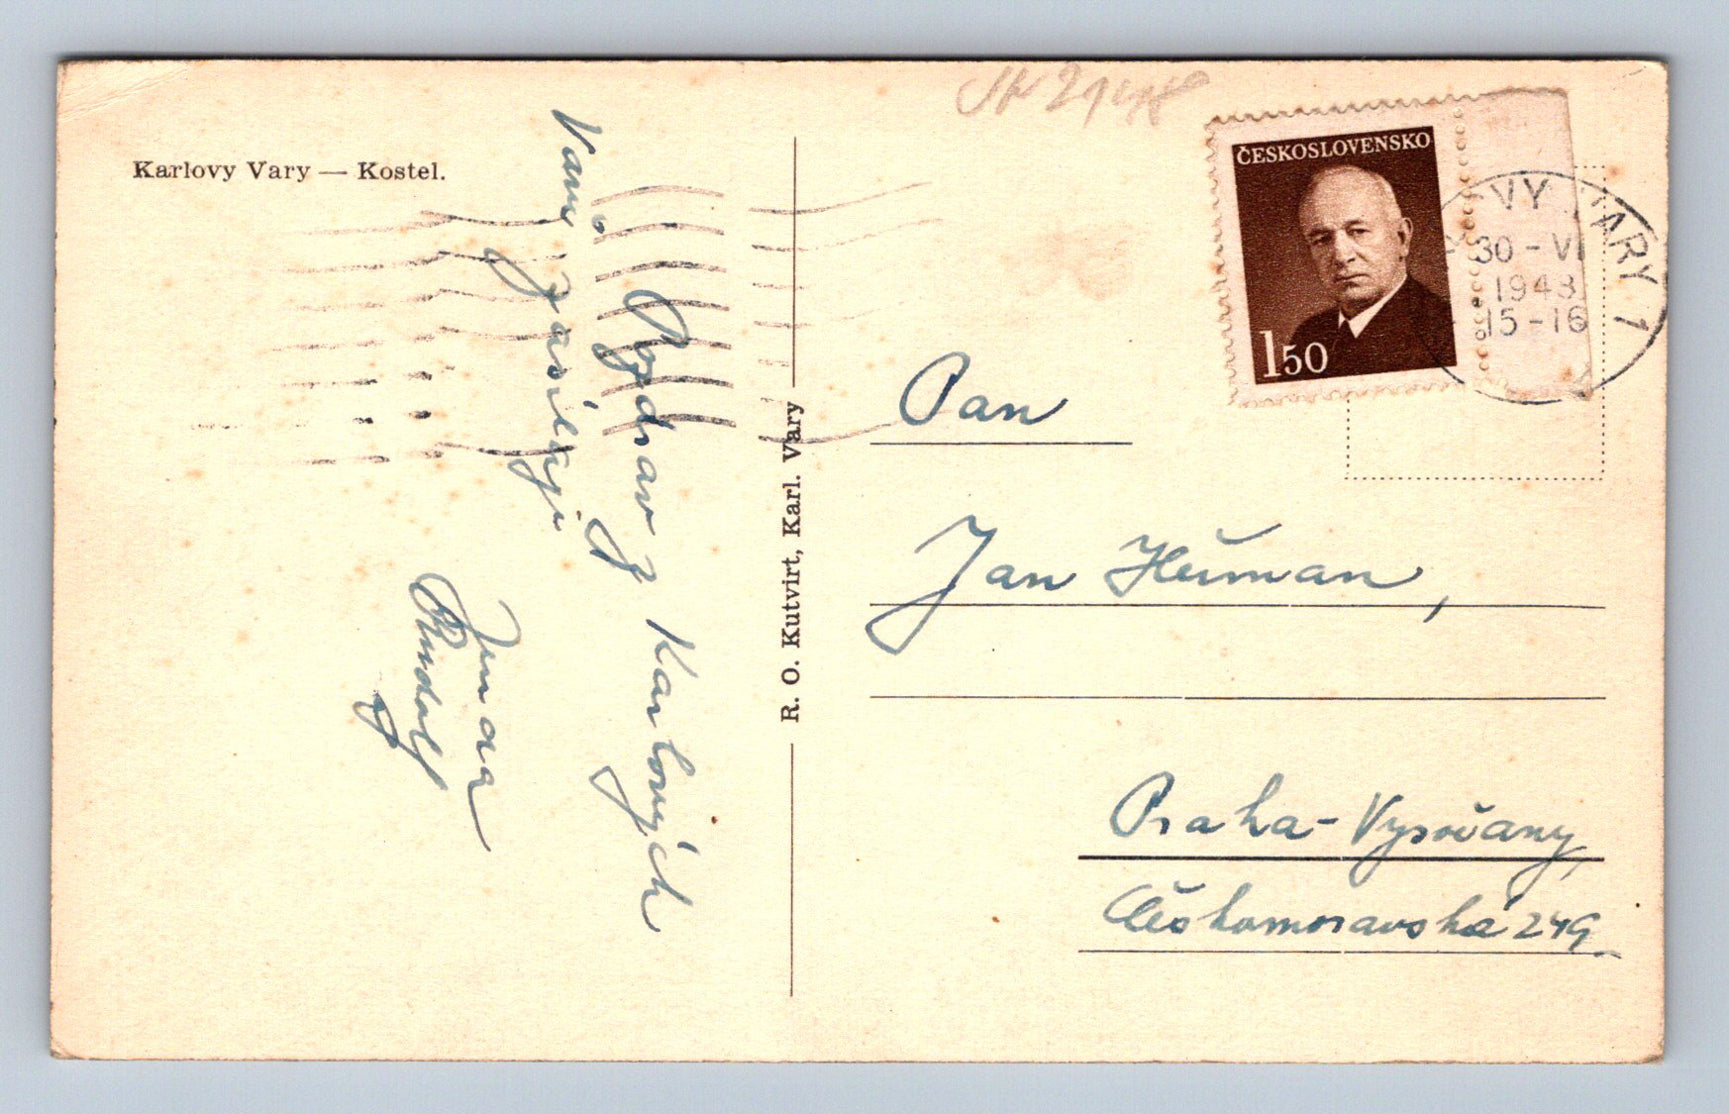 Karlovy Vary — Kostel.
Pozdrav z Karlových
Varů zasílají
Rudolf
R. O. Kutvirt, Karl. Vary
ČESKOSLOVENSKO
150
VY VARY 1
30 - VI
1948
15-16
Pan
Jan Heřman,
Praha - Vysočany,
Českomoravská 249.